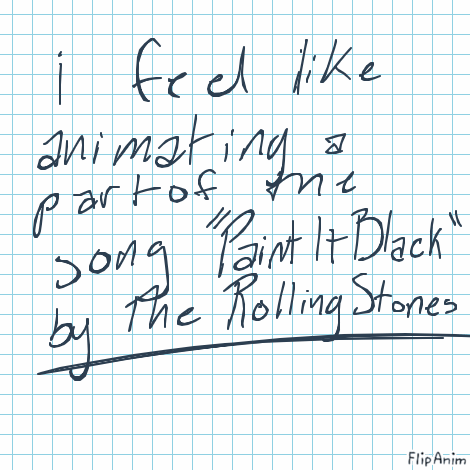 i feel like
animating a
part of the
song "Paint It Black"
by The Rolling Stones
FlipAnim